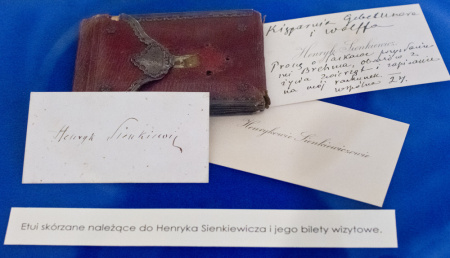 Księgarnia Gebethnera
i Wolffa
Henryk Sienkiewicz
Proszę o łaskawe przysłanie
mi Brehma,
życia zwierząt i zapisanie
na mój rachunek
Henryk Sienkiewicz
Henrykowie Sienkiewiczowie
Etui skórzane należące do Henryka Sienkiewicza i jego bilety wizytowe.